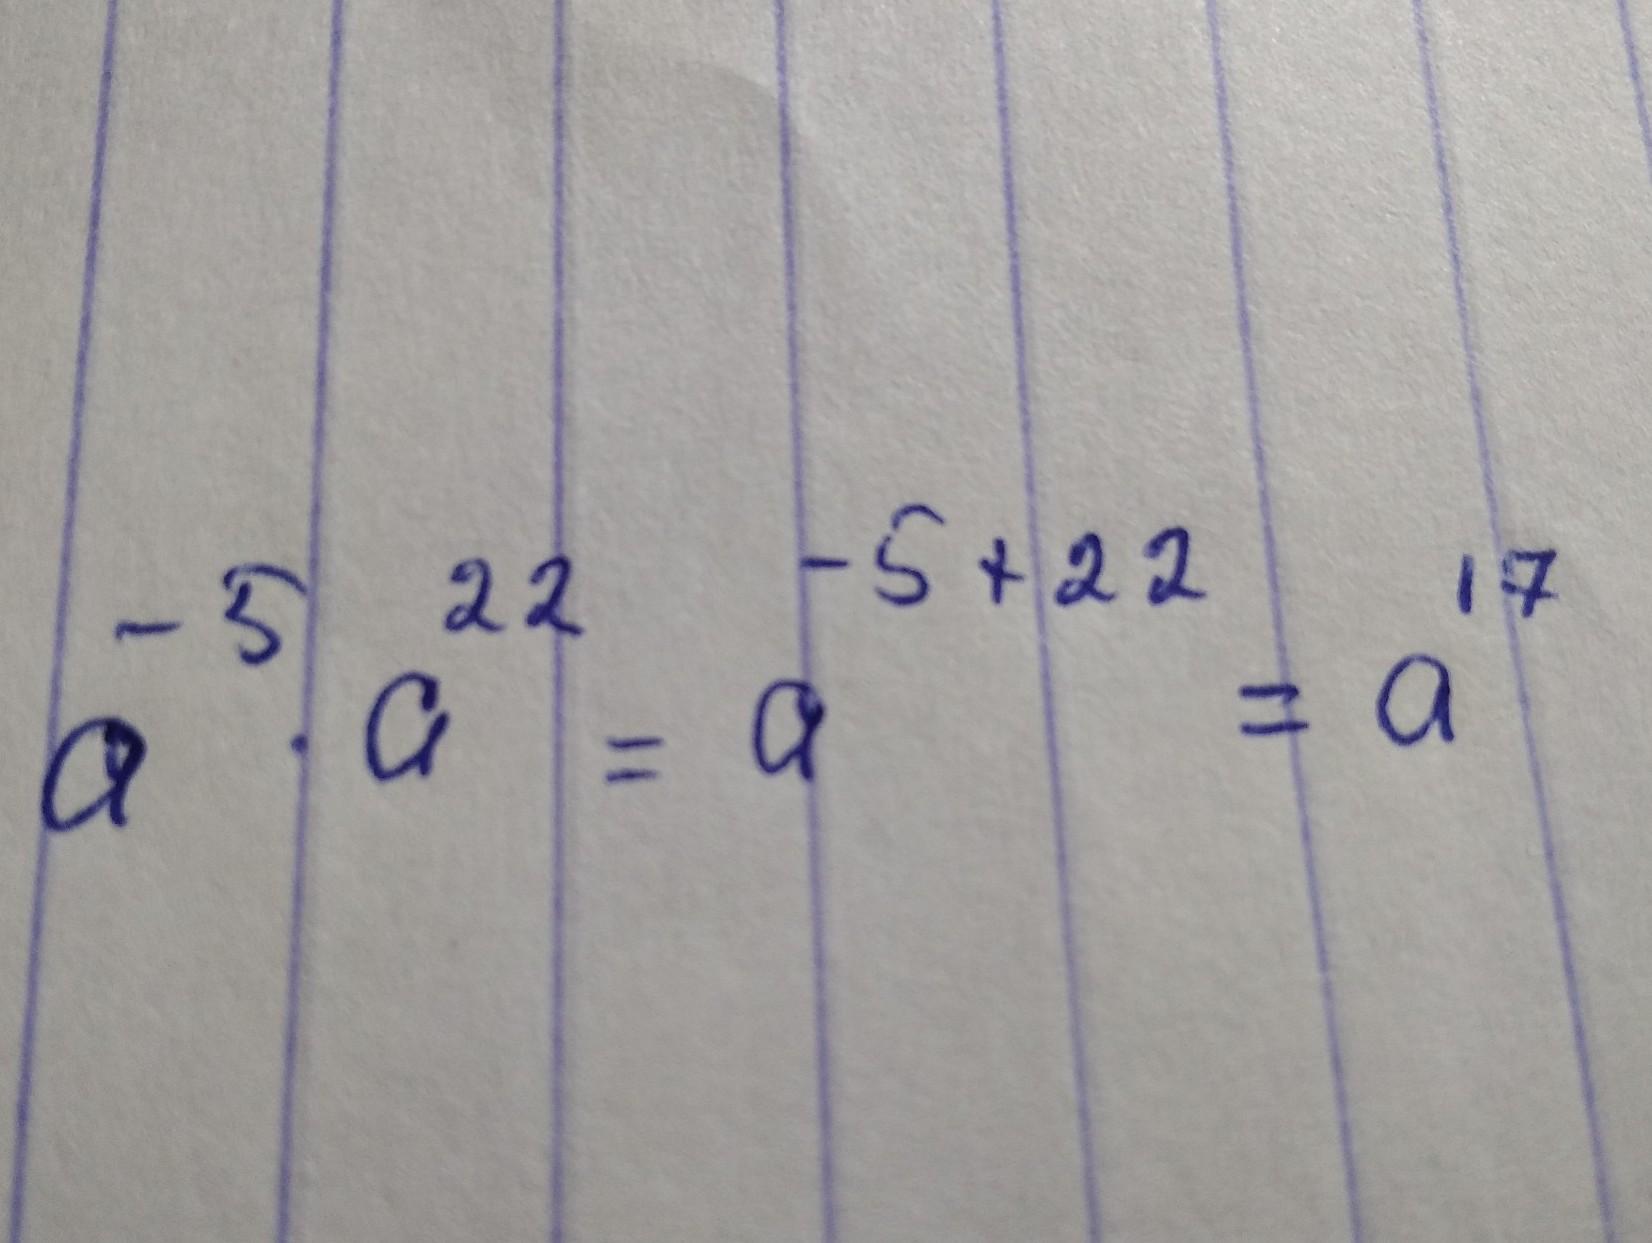 a⁻⁵ · a²² = a⁻⁵⁺²² = a¹⁷